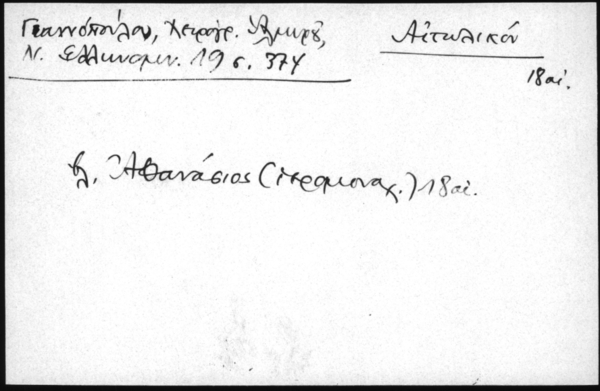 Γιαννόπουλου, Χειρόγρ. Ἁλμυροῦ,
Ν. Ἑλληνομν. 19 σ. 374
Αἰτωλικόν
18 αἰ.
βλ. Ἀθανάσιος (ἱερομοναχ.) 18 αἰ.